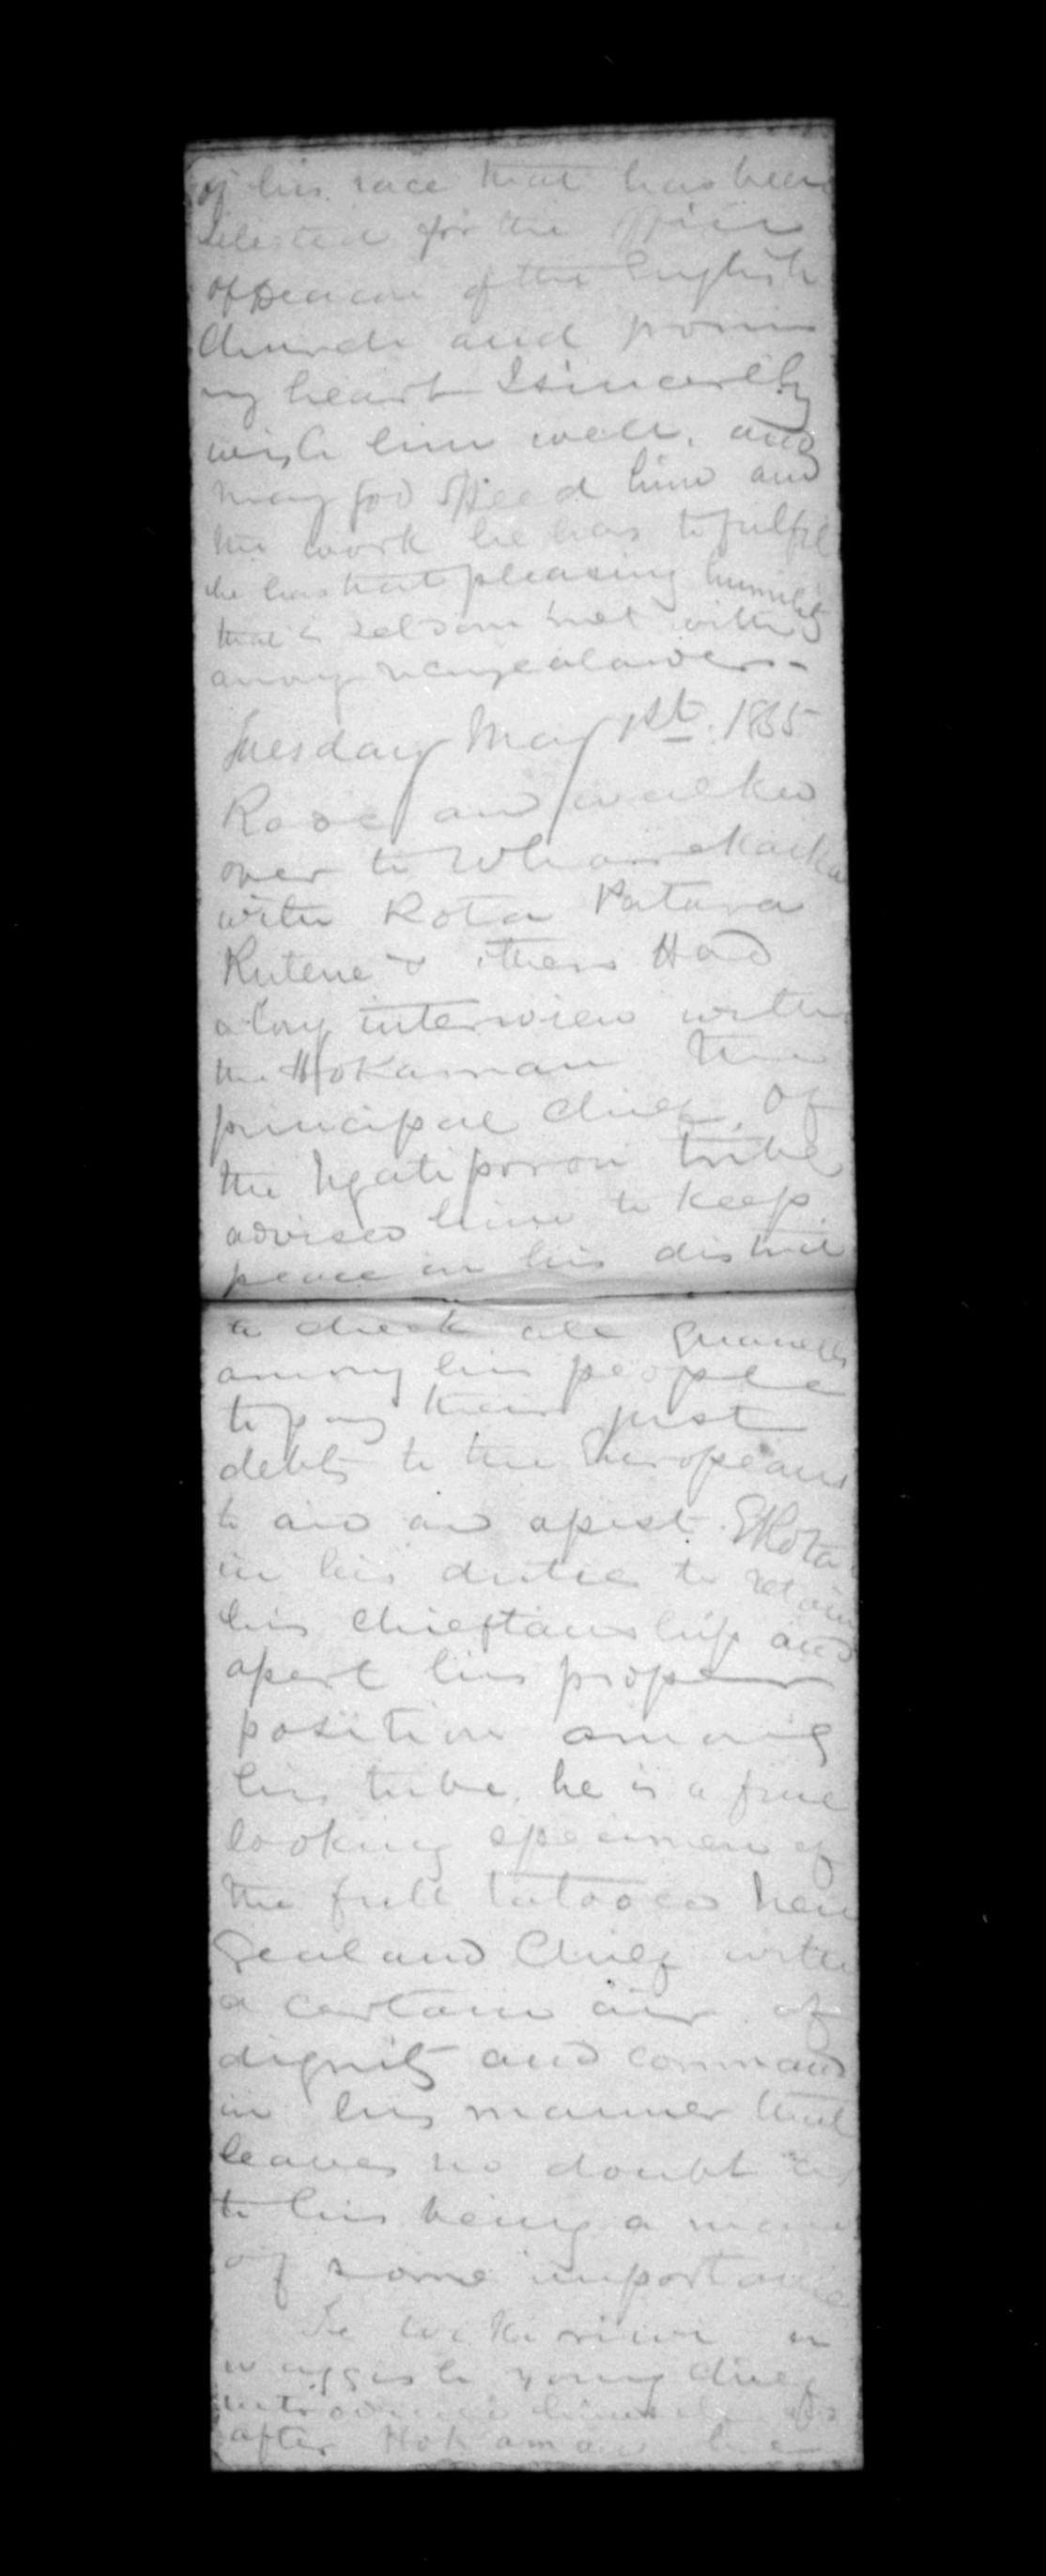 of his race that has been
selected for the office
of Deacon of the English
Church and from
my heart I sincerely
wish him well. and
may God speed him and
the work he has to fulfil
he has that pleasing humility
that is seldom met with
among New Zealanders -
Tuesday May 1st. 1865
Rose and walked
over to Wharekaika
with Rota Patara
Rutene & others Had
a long interview with
the Hokamau the
principal Chief of
the Ngatiporou tribe
advised him to keep
peace in his district
to check all quarrells
among his people
to pay their just
debts to the Europeans
to aid and assist. Rota
in his duties to retain
his Chieftainship and
assert his proper
position among
his tribe. he is a fine
looking specimen of
the full tatooed New
Zealand Chief with
a certain air of
dignity and command
in his manner that
leaves no doubt as
to his being a man
of some importance
Te Wikiriwi
waggish young chief
introduced himself
after Hokamau